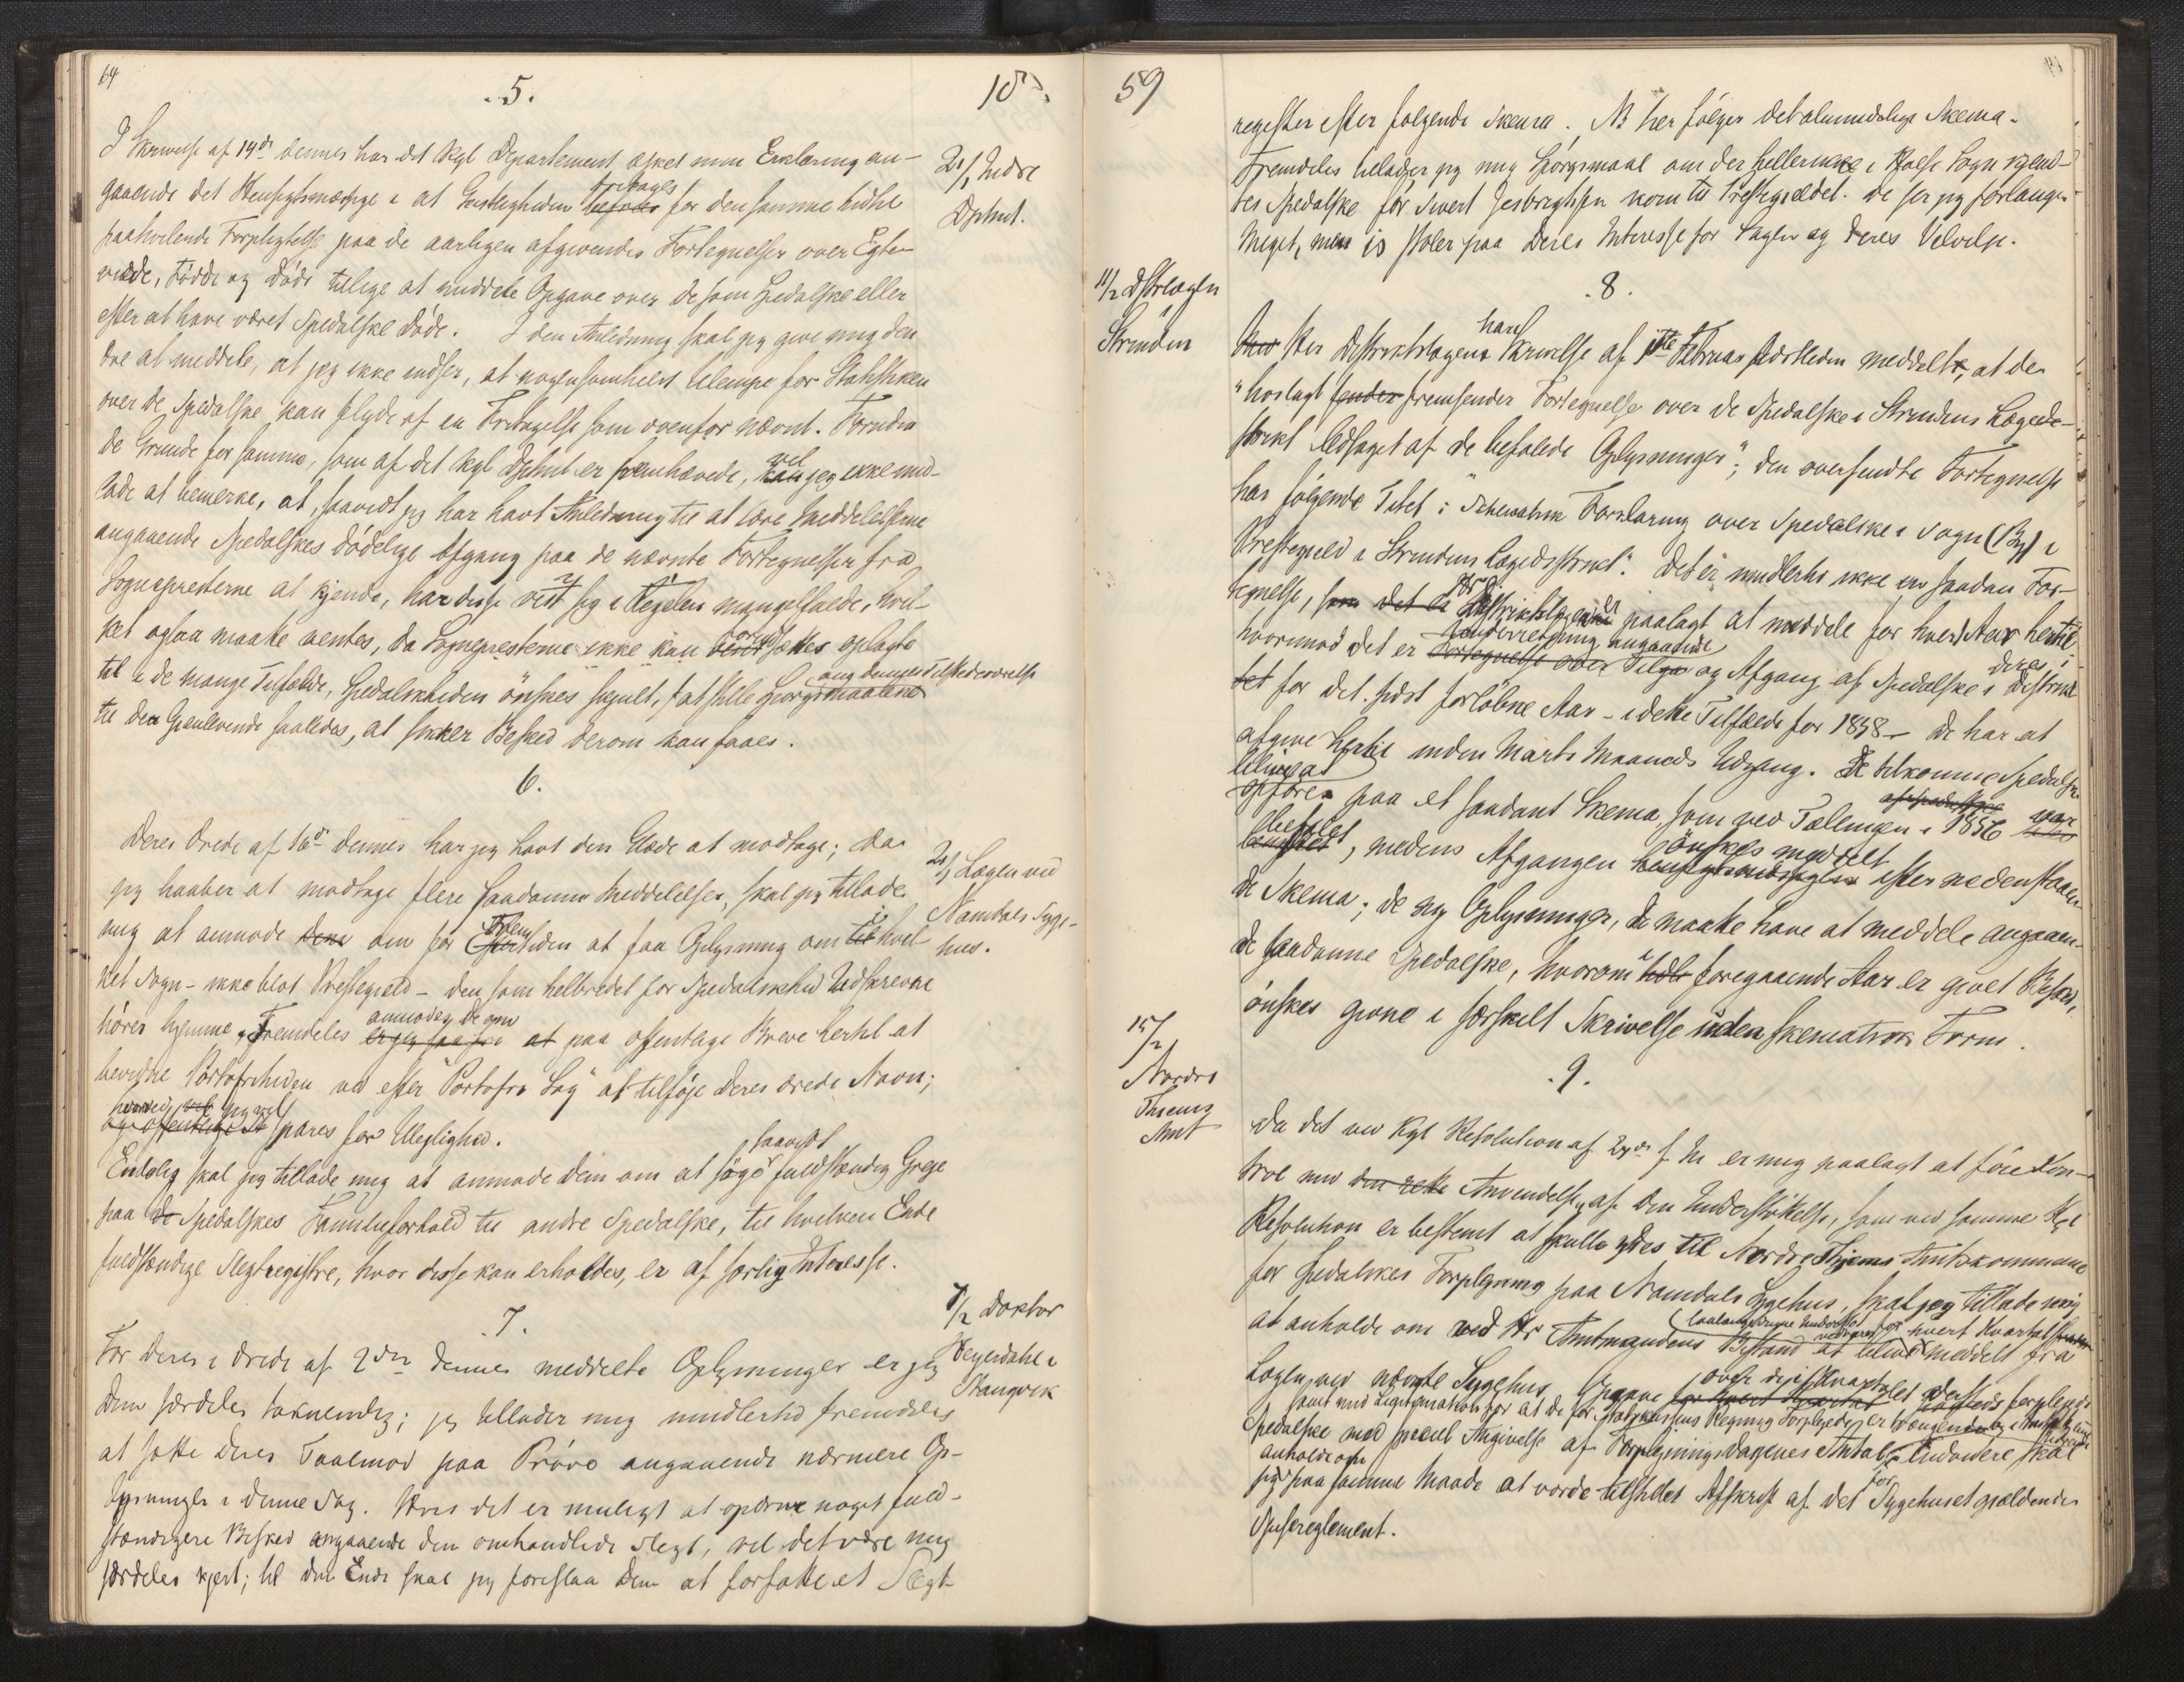 64
.5.
18
I Skrivelse af 19de dennes har det Kgl Departement æsket min Erklæring an-
21/1 Indre
Dptmt.
gaaende det Hensigtsmæssige i at Geistligheden befries fritages for den samme hidtil
paahvilende Forpligtelse paa de aarligen afgivendes Fortegnelser over Egte-
viede, Födde og Döde tillige at meddele Opgave over de som Spedalske eller
efter at have været Spedalske Döde. I den Anledning skal jeg give mig den
Ære at meddele, at jeg ikke indser, at nogensomhelst Ulempe for Statistiken
over de Spedalske kan flyde af en Fritagelse som ovenfor nævnt. Foruden
de Grunde for samme, som af det Kgl Dptmt er fremhævede, kan vel jeg ikke und-
lade at bemerke, at, saavidt jeg har havt Anledning til at lære Meddelelserne
angaaende Spedalskes dödelige Afgang paa de nævnte Fortegnelser fra
Sognepresterne at kjende, har disse vist sig i Regelen mangelfulde, hvil-
ket ogsaa maatte ventes, da Sognepresterne ikke kan forudsættes oplagte
til i de mange Tilfælde, Spedalskheden önskes skjult, at stille Spörgsmaalene ang dennes Tilstedeværelse
til den Gjenlevende saaledes, at sikker Besked derom kan faaes.
6.
Deres Ærede af 16de dennes har jeg havt den Glæde at modtage; da
21/1 Lægen ved
Namdals Syge-
hus.
jeg haaber at modtage flere saadanne Meddelelser, skal jeg tillade
mig at anmode Dem om for Fremtiden at faa Oplysning om til hvil-
ket Sogn - ikke blot Prestegjeld - den som helbredet for Spedalskhed Udskrevne
hörer hjemme. Fremdeles anmodes De om at paa offentlige Breve hertil at
bevidne Portofriheden ved efter "Portofri Sag" at tilföje Deres ærede Navn;
hvorved jeg vel spares for Uleylighed.
Endelig skal jeg tillade mig at anmode Dem om at söge saavidt fuldstændig Greje
paa de Spedalskes Familieforhold til andre Spedalske, til hvilken Ende
fuldstændige Slegtregistre, hvor disse kan erholdes, er af særlig Interesse.
.7.
8/2 Doktor
Heyerdahl i
Stangvik
For Deres i Ærede af 2den dennes meddelte Oplysninger er jeg
Dem særdeles taknemlig; jeg tillader mig imidlertid fremdeles
at sætte Deres Taalmod paa Pröve angaaende nærmere Op-
lysninger i denne Sag. Hvis det er muligt at opdrive noget fuld-
stændigere Besked angaaende den omhandlede Slegt, vil det være mig
særdeles kjert; til den Ende skal jeg foreslaa Dem at forfatte et Slegt-
59
register efter fölgende Skema. NB her fölger det almindelige Skema.
Fremdeles tillader jeg mig Spörgsmaal om der hellerikke i Halse Sogn kjend-
tes Spedalske för Sivert Jesbrigtsen kom til Prestegjeldet. De ser jeg forlanger
Meget, men jeg stoler paa Deres Interesse for Sagen og Deres Velvilje.
.8.
11/2 Dstrlægen
i
Strinden
Hr Distriktslægen har i Skrivelse af 1ste Februar sidstleden meddelt, at der
"hoslagt sender fremsender Fortegnelse over de Spedalske i Strindens Lægedi-
strikt ledsaget af de befalede Oplysninger"; den oversendte Fortegnelse
har fölgende Titel: "Schematisk Forklaring over Spedalske i Sogn (By) i
Prestegjeld i Strindens Lægedistrikt". Det er imidlertid ikke en saadan For-
tegnelse, som det er Hr Distriktslægen paalagt at meddele for hvert Aar hertil,
hvorimod det er Fortegnelse over Underretning angaaende Tilga og Afgang af Spedalske i Deres Distrikt
tet for det sidst forlöbne Aar - i dette Tilfælde for 1858 - De har at
afgive hertil inden Marts Maaneds Udgang. De tilkomne Spedalske
opföres paa et saadant Skema, som ved Tællingen af spedalske i 1856 var
befalet, medens Afgangen önskes meddelt efter nedenstaaen-
de Skema; de ny Oplysninger, De maatte have at meddele angaaen-
de saadanne Spedalske, hvorom i foregaaende Aar er givet Besked,
önskes givne i særskilt Skrivelse uden skematisk Form.
.9.
15/2
Nordre
Thiems
Amt
Da det ved Kgl Resolution af 29de f. M er mig paalagt at före Kon-
trol med den rette Anvendelse af den Understöttelse, som ved samme
Resolution er bestemt at skulle ydes til Nordre Thjems Amtskommune
for Spedalskes Forplejning paa Namdals Sygehus, skal jeg tillade mig
at anholde om ved Hr Amtmandens Bistand at blive meddelt for hvert Kvartal fra
Lægen ved nævnte Sygehus Opgave over de i Kvartalet forplejede
Spedalske med speciel Angivelse af Forplejningsdagenes Antal. Endvidere skal
samt med Legitimation for at de for Statskassens Regning Forplejede er
jeg anholde om paa samme Maade at vorde tilstillet Afskrift af det for Sygehuset gjeldende
Spisereglement.